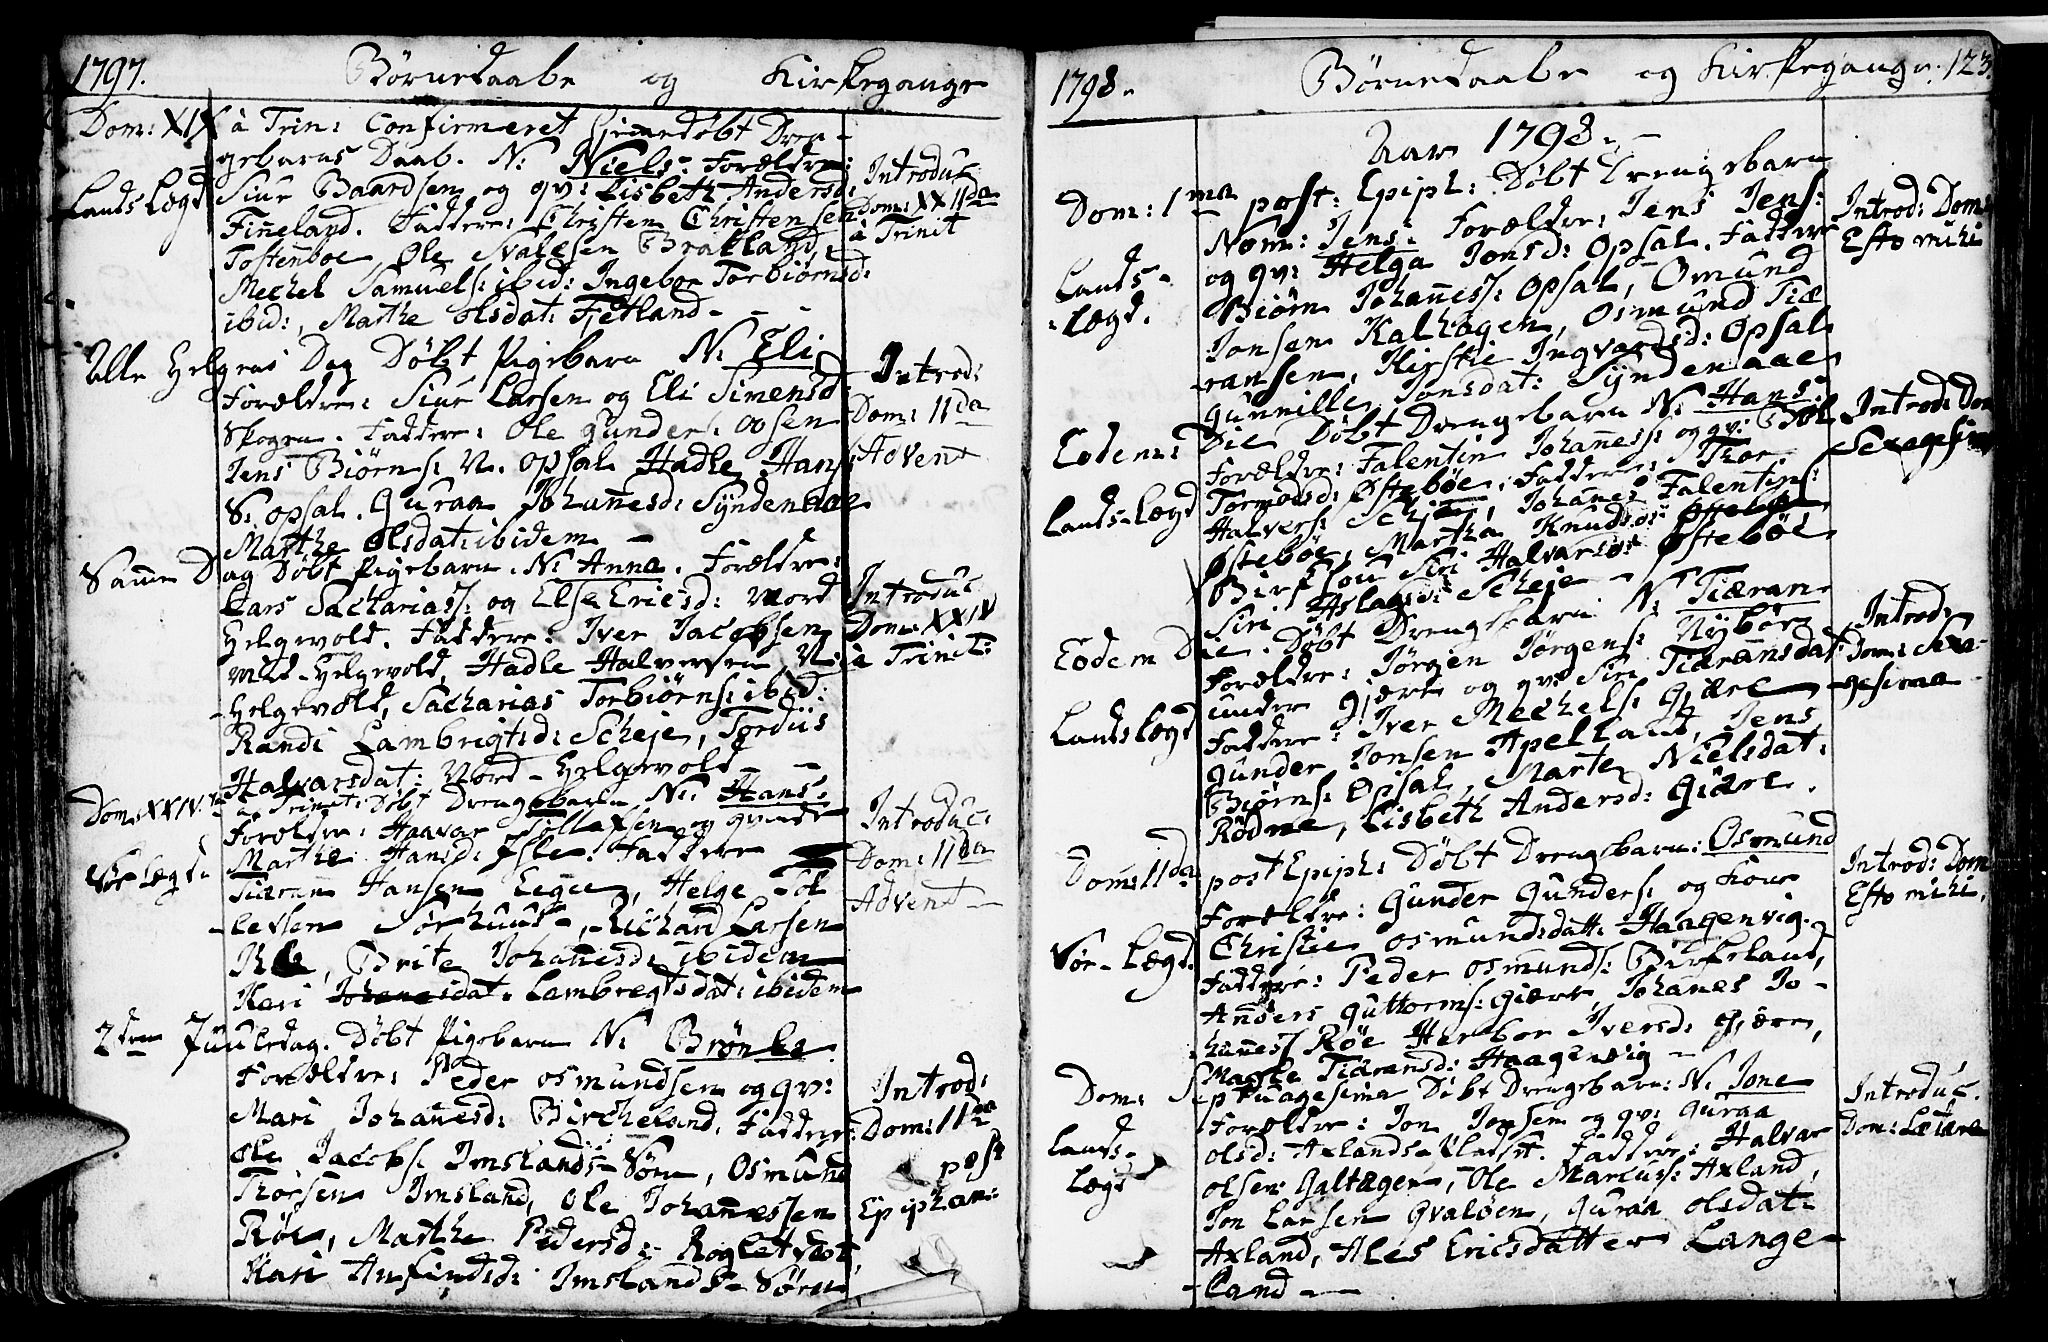 1797. Børnedaabe og Kirkegange
Dom: XIX à Trin: Confirmeret hjemedøbt Dren-
gebarns Daab. N: Niels: Forældre:
Lands Lægd Siur Baardsen og qv: Lisbeth Andersd:
Fineland. Faddere: Christen Christensen
Tostenboe, Ole Svalesen Brakland,
Mechel Samuels: ibid: Ingebor Torbiørnsd:
ibid:, Marthe Olsdat: Fjetland - - -
Introduc
Dom: XXIIda
à Trinit
Alle Helgens Dag Døbt Pigebarn N: Eli
Forældre: Siur Larsen og Eli Simensd:
Skogen. Faddere: Ole Gunders: Opsen
Jens Biørns: N. Opsal Hadle Hans:
S: Opsal. Guraa Johannesd: Syndenaae
Marthe Olsdat: ibidem -
Introd:
Dom: 11da
Advent
Samme Dag Døbt Pigebarn. N: Anna. Forældre:
Lars Sachariass: og Else Ericsd: Nord
Helgevold. Faddere: Iver Jacobsen
Mid-Helgevold, Hadle Halversen N:
-Helgevold, Sacharias Torbiørns: ibid:
Randi Lambrigtsd: Scheje, Tordiis
Halvarsdat: Nord-Helgevold - -
Introduc
Dom: XXIV
à Trinit:
Dom: XXIV.ta a Trinit: Døbt Drengebarn N: Hans:
Forældre: Haavar Tollefsen og qvinde
Sør Lægd: Marthe Hansd: Øslen. Faddere
Tiæran Hansen Eegee, Helge Tol
levsen Sørhuus, Richard Larsen
Brite Johannesd: ibidem
Keri Johanesdat. Lambregtsdat: ibidem
Introduc:
Dom: 11da
Advent -
2den Juuledag. Døbt Pigebarn N: Brønla
Forældre: Peder Osmundsen og qv:
Mari Johanesd: Bircheland. Faddere:
Ole Jacobs: Imslands-Søm, Osmund
Thorsen Imsland, Ole Johannessen
Røe, Marthe Pedersd: Rogletvedt,
Kari Anfindsd: Imslands-Søren
Introd:
Dom: 11da
post
Epiphan:
1798. Børnedaabe og Kirkegange. 123.
Aar 1798. -
Dom: 1ma post: Epiph: Døbt Drengebarn
Nom: Jens: Forældre: Jens Jens:
og qv: Helga Jonsd: Opsal. Faddere
Lands-
Lægd.
Biørn Johaness: Opsal, Omund
Jonsen Kalhagen, Osmund Tiæ
-ransen, Kirstie Ingvardsd: Opsal
Gunnille Jonsdat: Syndenaae
Introd: Dom:
Esto mihi
Eodem: Die Døbt Drengebarn N: Hans:
Forældre: Falentin Johaness: og qv:
Lands-Lægd Tormodsd: Østebøe. Faddere: Thor
Halvers: Johanes Falentins:
Østebøe, Martha Knudsd: Østebøe
Siri Halvarsd: Østebøe
Siri Aslagsd: Scheje -
Introd: Dom
Sexagesima
Eodem Die. Døbt Drengebarn N: Tiæran
Forældre: Jørgen Jørgens: Nybøe
under Gjære og qv: Siri Tiæransdat:
Lands Lægd Faddere: Iver Mechels: Giære
Gunder Jonsen Apelland, Jens
Biørns: Opsal, Marte Nielsdat:
Rødne, Lisbeth Andersd: Giære.
Introd:
Dom: Sexa-
gesima
Dom: 11da post Epiph: Døbt Drengebarn: Osmund
Forældre: Gunder Gunders: og Kone
Sør-Lægd. Christie Osmundsdatt: Haagenvig.
Faddere: Peder Osmunds: Birkeland,
Anders Guttorms: Giære, Johanes Jo-
haness Røe Herbor Iversd: Gjære,
Marthe Tiæransd: Haagenvig -
Introd: Dom
Esto mihi.
Dom: Septuagesima Døbt Drengebarn: N: Jone
Forældre: Jon Jonsen og qv: Guraa
Lands-
Lægd
Olsd: Axlands-Pladset. Faddere: Halvar
Olsen Galtager, Ole Marcus: Axland,
Jon Larsen Gvaløen, Guraa Olsdat:
Axland, Ales Ericsdatter Lange-
-land -
Introduc.
Dom: Lætare